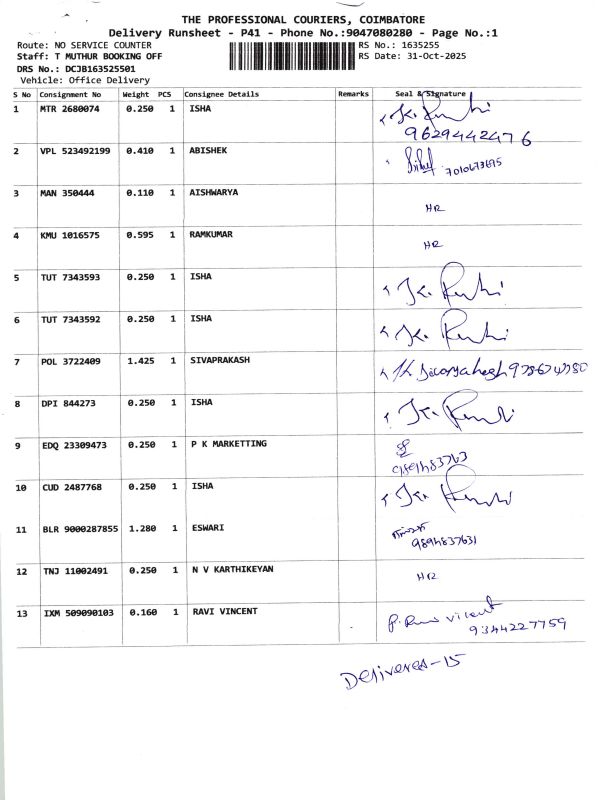 THE PROFESSIONAL COURIERS, COIMBATORE
Delivery Runsheet - P41 - Phone No.:9047080280 - Page No.:1
Route: NO SERVICE COUNTER RS No.: 1635255
Staff: T MUTHUR BOOKING OFF RS Date: 31-Oct-2025
DRS No.: DCJB163525501
Vehicle: Office Delivery
S No Consignment No Weight PCS Consignee Details Remarks Seal & Signature
1 MTR 2680074 0.250 1 ISHA
9629442476
2 VPL 523492199 0.410 1 ABISHEK
3 MAN 350444 0.110 1 AISHWARYA HR
4 KMU 1016575 0.595 1 RAMKUMAR HR
5 TUT 7343593 0.250 1 ISHA
6 TUT 7343592 0.250 1 ISHA
7 POL 3722409 1.425 1 SIVAPRAKASH
8 DPI 844273 0.250 1 ISHA
9 EDQ 23309473 0.250 1 P K MARKETTING
10 CUD 2487768 0.250 1 ISHA
11 BLR 9000287855 1.280 1 ESWARI
9894837631
12 TNJ 11002491 0.250 1 N V KARTHIKEYAN HR
13 IXM 509090103 0.160 1 RAVI VINCENT
9344227759
Deliveres-15